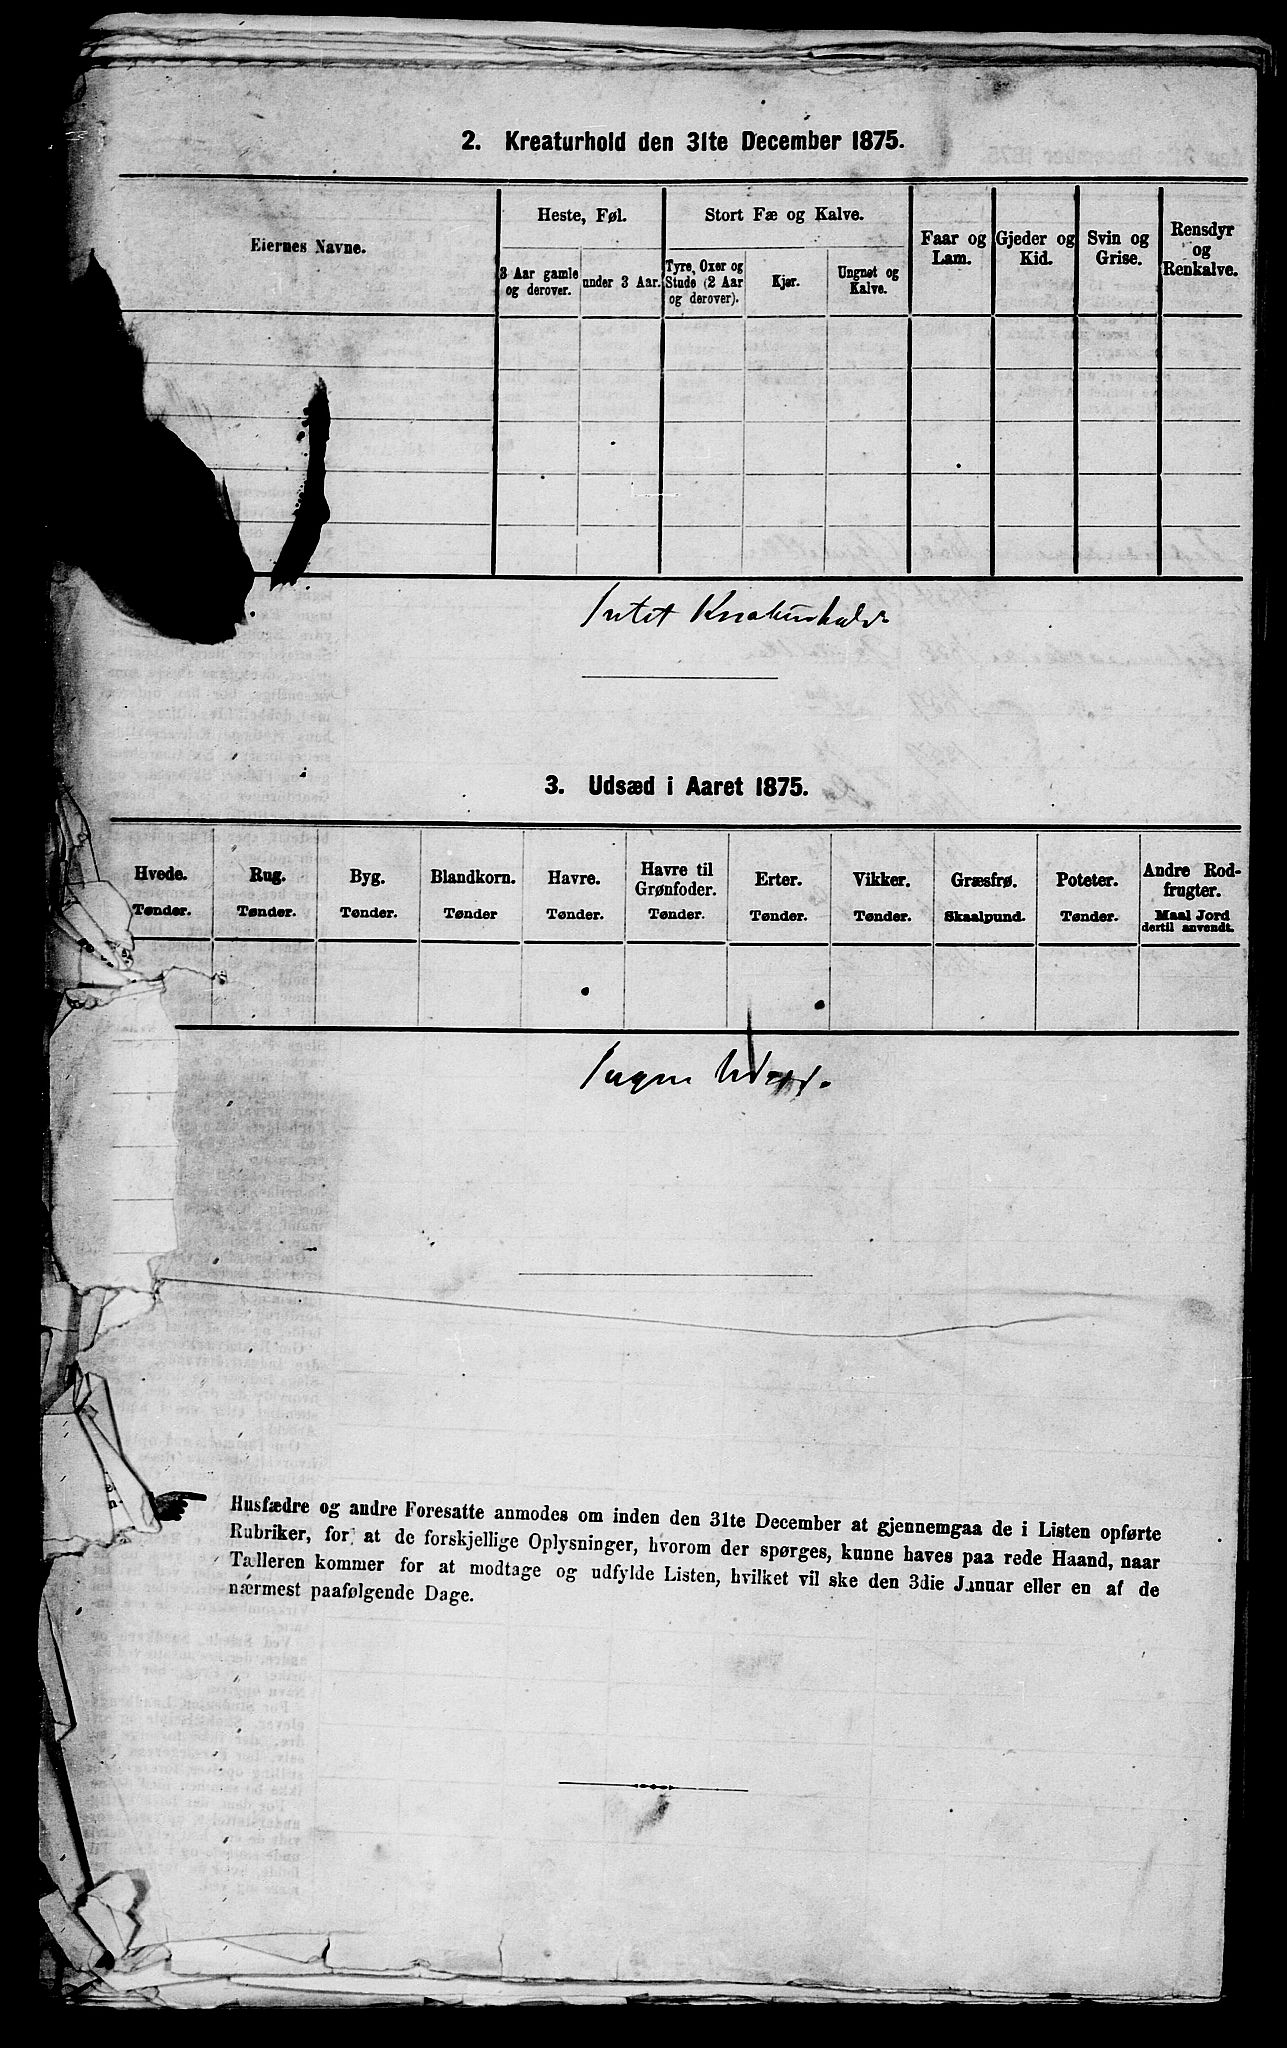 2. Kreaturhold den 31te December 1875.
Eiernes Navne.
Heste, Føl.
Stort Fæ og Kalve.
Faar og Lam.
Gjeder og Kid.
Svin og Grise.
Rensdyr og Renkalve.
3 Aar gamle og derover.
under 3 Aar.
Tyre, Oxer og Stude (2 Aar og derover).
Kjør.
Ungnøt og Kalve.
Intet Kreaturhold
3. Udsæd i Aaret 1875.
Hvede. Rug. Byg. Blandkorn. Havre. Havre til Grønfoder. Erter. Vikker. Græsfrø. Poteter. Andre Rodfrugter.
Tønder. Tønder. Tønder. Tønder Tønder. Tønder. Tønder. Tønder. Skaalpund. Tønder. Maal Jord dertil anvendt.
Ingen Udsæd.
Husfædre og andre Foresatte anmodes om inden den 31te December at gjennemgaa de i Listen opførte
Rubriker, for at de forskjellige Oplysninger, hvorom der spørges, kunne haves paa rede Haand, naar
Tælleren kommer for at modtage og udfylde Listen, hvilket vil ske den 3die Januar eller en af de
nærmest paafølgende Dage.